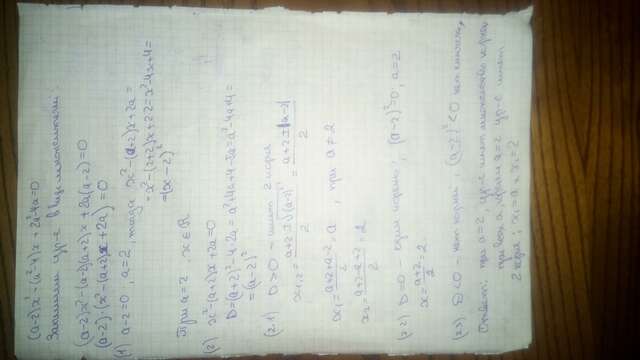 (a-2)x²-(a²-4)x+2a²-4a=0
Запишем ур-е в виде множителей:
(a-2)x²-(a-2)(a+2)x+2a(a-2)=0
(a-2)·(x²-(a+2)x+2a)=0
(1) a-2=0, a=2, тогда x²-(a+2)x+2a=
=x²-(2+2)x+2·2=x²-4x+4=
=(x-2)²
При a=2 x∈R
(2) x²-(a+2)x+2a=0
D=(a+2)²-4·2a=a²+4a+4-8a=a²-4a+4=
=(a-2)²
(2.1) D>0 - имеет 2 корня
x₁,₂=(a+2±√(a-2)²)/2=(a+2±|a-2|)/2
x₁=(a+2+a-2)/2=a, при a≠2
x₂=(a+2-a+2)/2=2
(2.2) D=0 - один корень, (a-2)²=0, a=2
x=(a+2)/2=2
(2.3) D<0 - нет корней, (a-2)²<0 нет
Ответ: при a=2 ур-е имеет множество корней,
при всех a, кроме a=2 ур-е имеет
2 корня; x₁=a, x₂=2